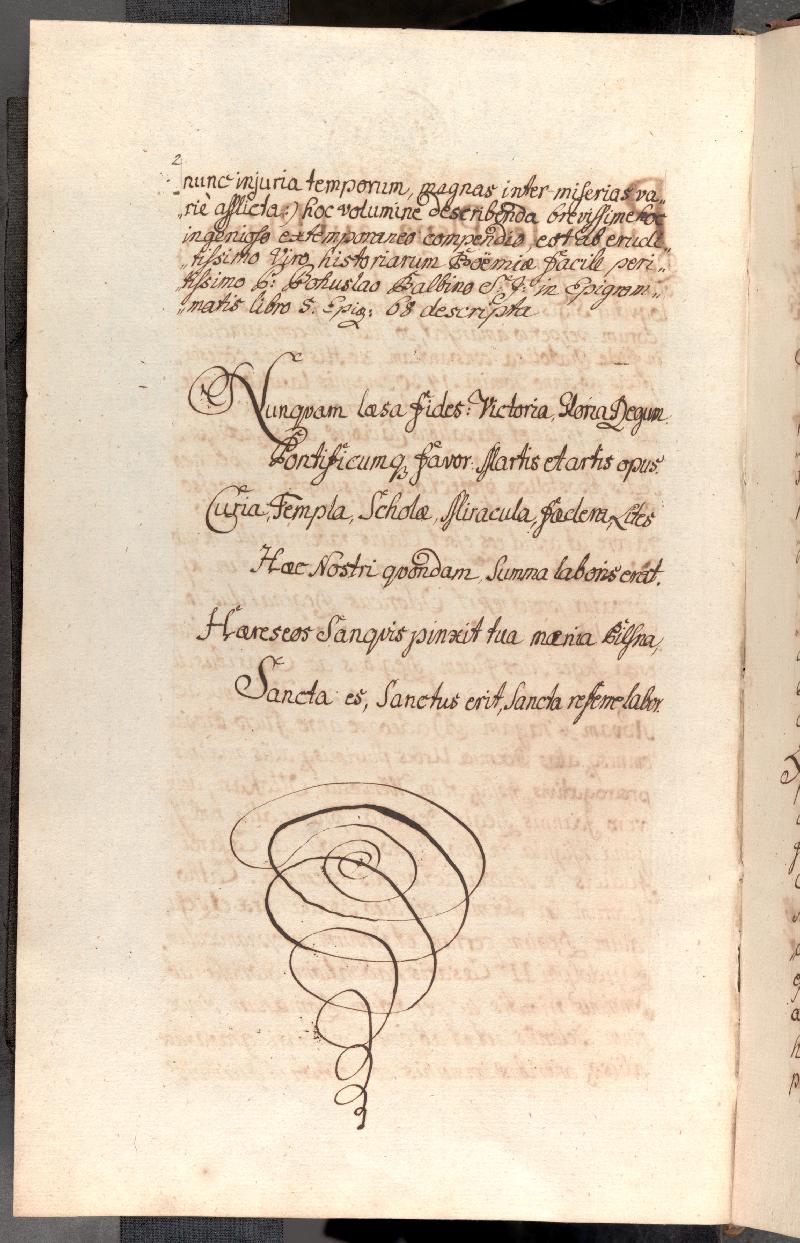 2
nunc injuria temporum, magnas inter miserias va„
„riè afflicta:) hoc volumine describenda brevissime hoc
ingenioso extemporaneo compendio, est ab erudi„
„tissimo Viro, historiarum Boëmiæ facile peri„
„tissimo P: Bohuslao Balbino S: J: in Epigram„
„matis libro 5. Epig: 68 descripta
Nunquam læsa fides: Victoria, Gloria Regum
Pontificumq3 favor: Martis et artis opus.
Curia, Templa, Scholæ, Miracula, fœdera, Lites
Hæc Nostri quondam, Summa laboris erat.
Hæreseos Sanguis pinxit tua mœnia Pilsna,
Sancta es, Sanctus erit, Sancta referre labor.